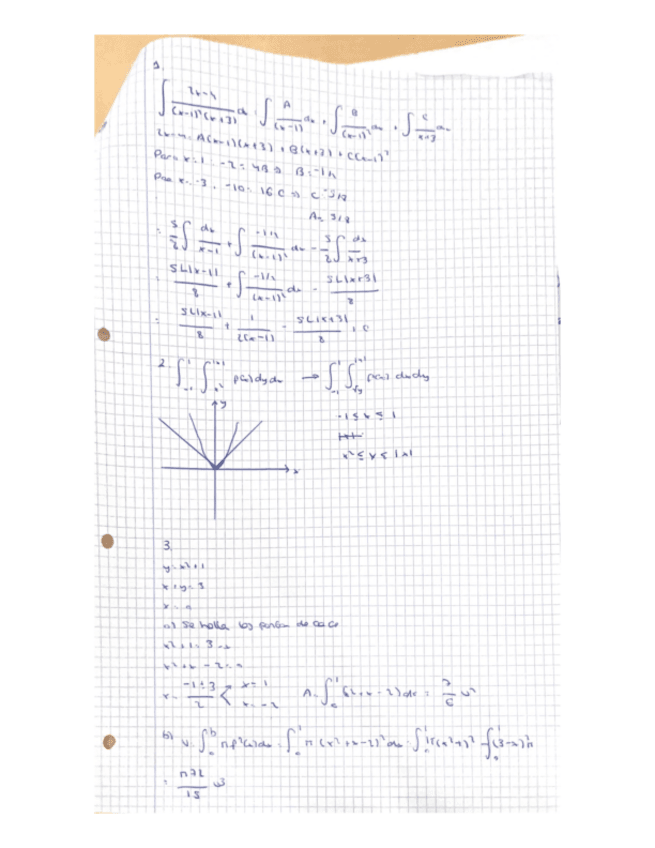 1.
∫ 2x-4/(x-1)²(x+3) dx = ∫ A/(x-1) dx + ∫ B/(x-1)² dx + ∫ C/x+3 dx
2x-4 = A(x-1)(x+3) + B(x+3) + C(x-1)²
Para x=1 -2=4B ⇒ B=-1/2
Para x=-3, -10=16C ⇒ C=-5/8
A=5/8
∫ dx/x-1 + ∫ -1/2/(x-1)² dx - ∫ dx/x+3
= 5L|x-1|/8 + ∫ -1/2/(x-1)² dx - 5L|x+3|/8
= 5L|x-1|/8 + 1/2(x-1) - 5L|x+3|/8 + C
2. ∫₋₁¹ ∫ₓ²^|x| f(x) dy dx → ∫₋₁¹ ∫√y^|x| f(x) dx dy
y
-1 ≤ x ≤ 1
x
x² ≤ y ≤ |x|
3.
y=x²+1
x+y=3
a) Se halla los puntos de
x²+1=3-x
x²+x-2=0
x= -1±3/2 < x=1 x=-2
A=∫₀¹ (x²+x-2) dx = 7/6 u²
b) V=∫ₐᵇ π f²(x) dx = ∫₀¹ π (x²+x-2)² dx = ∫₀¹ π(x²+1)² - ∫₀¹ (3-x)² π
= u³